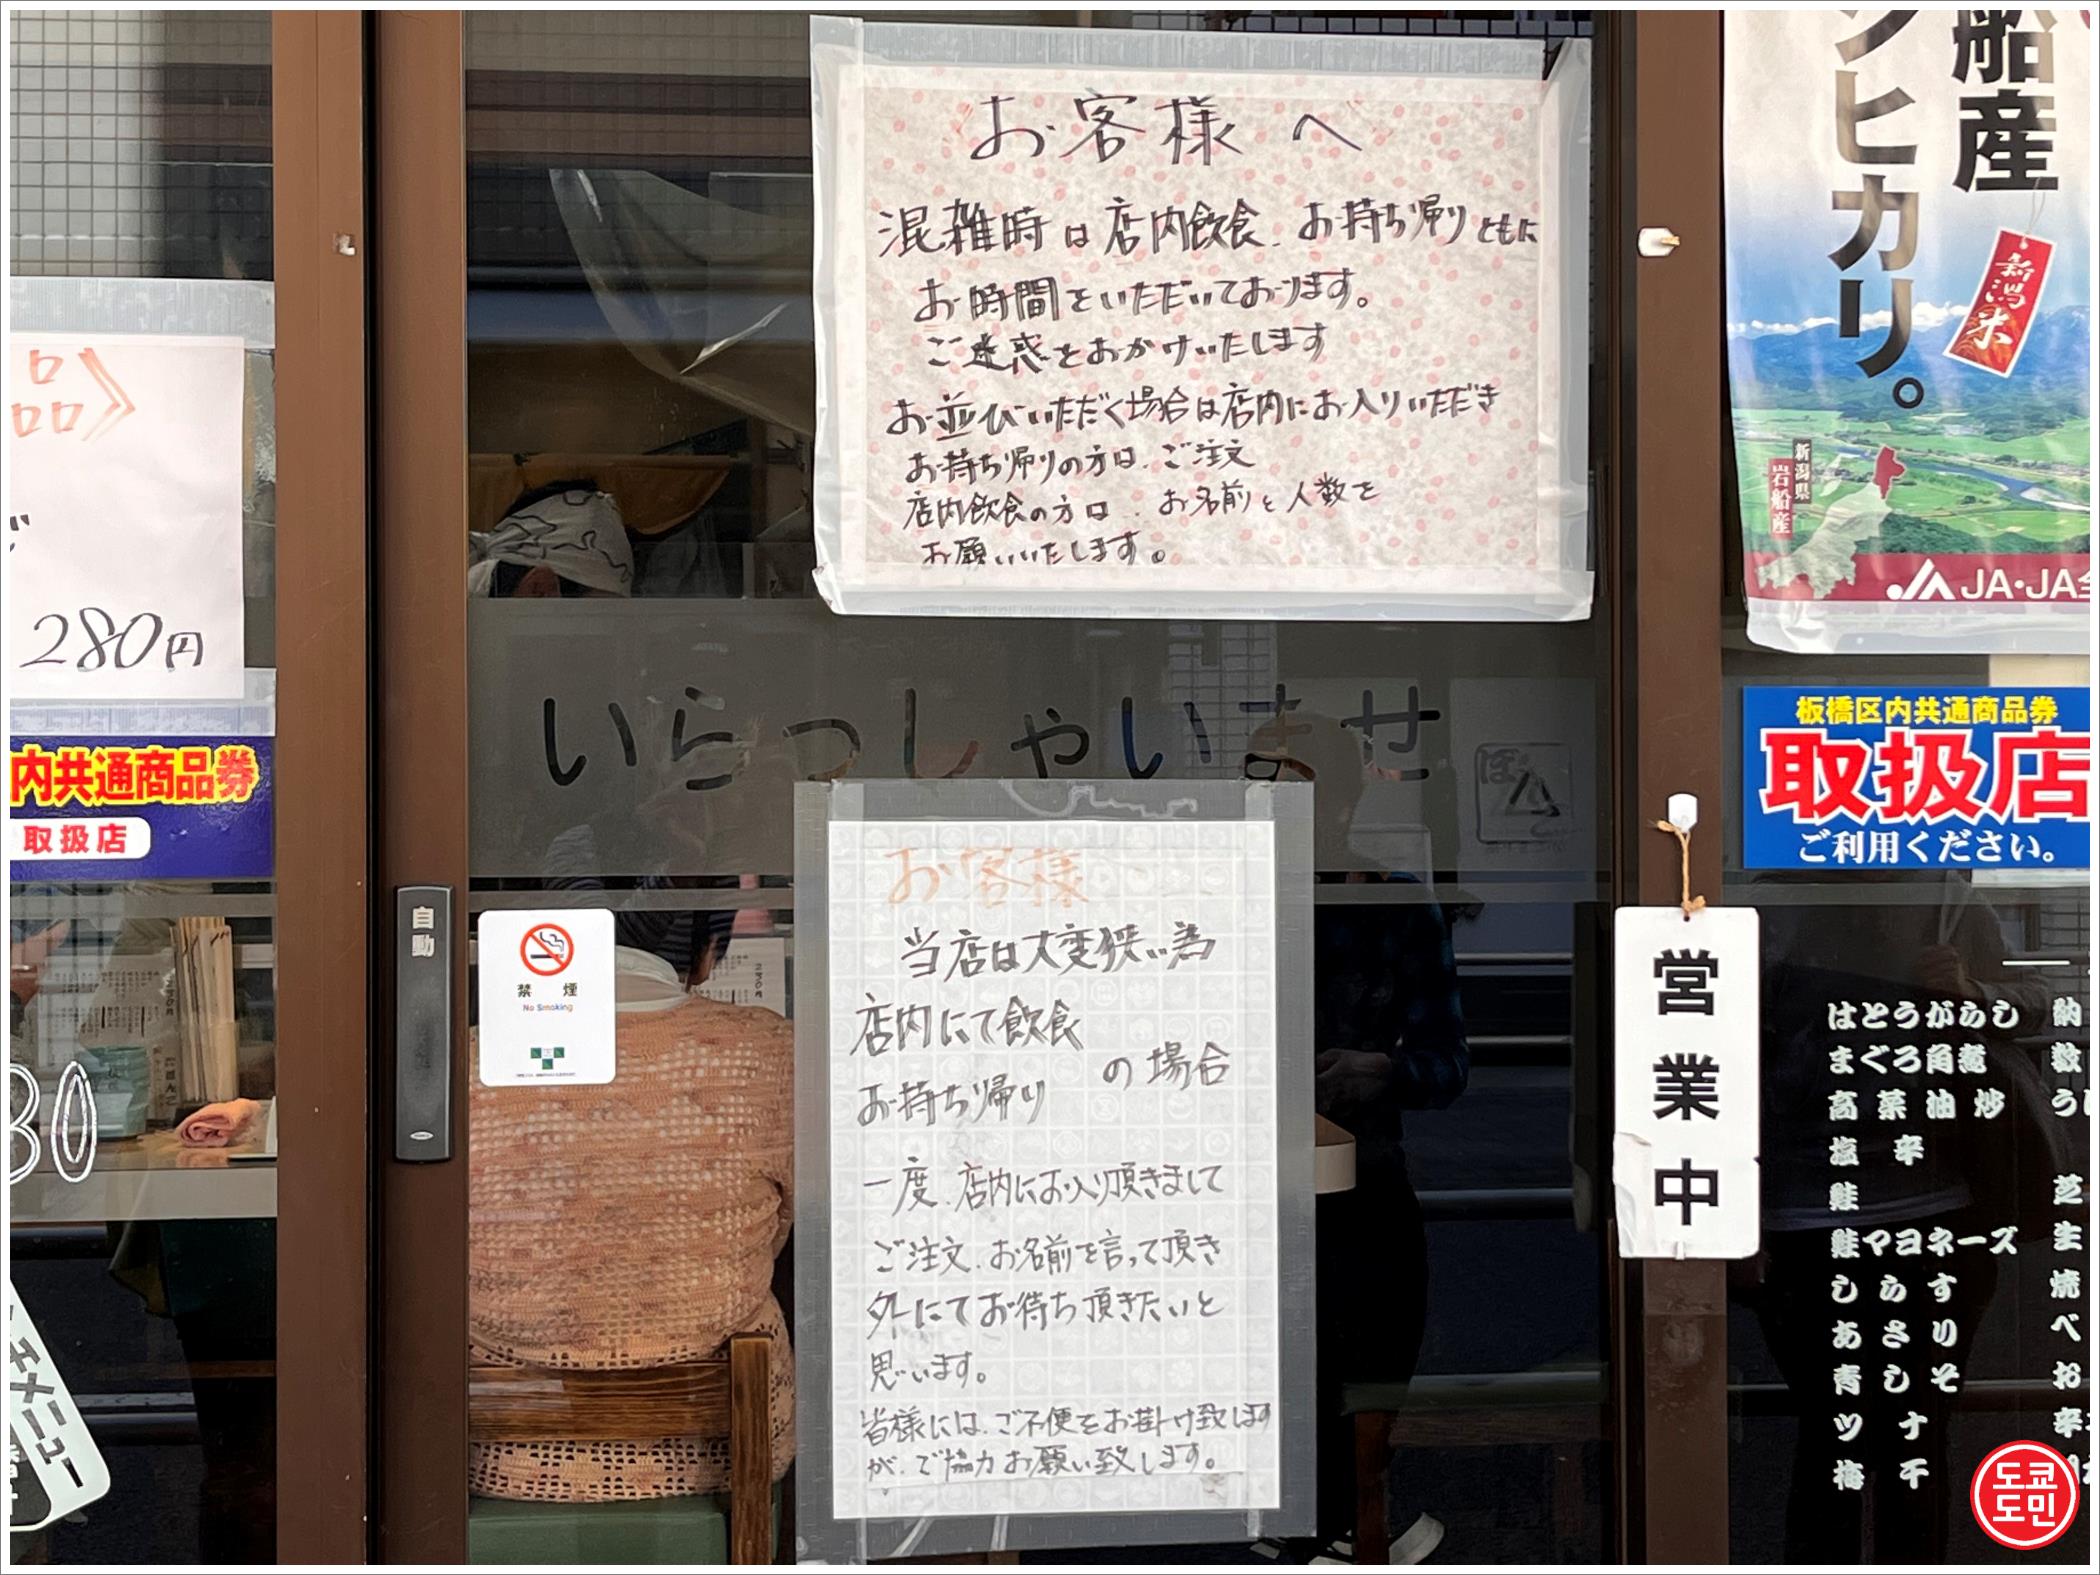 お客様へ
混雑時は店内飲食、お持ち帰りともに
お時間をいただいております。
ご迷惑をおかけいたします
お並びいただく場合は店内にお入りいただき
お持ち帰りの方は、ご注文
店内飲食の方は、お名前と人数を
お願いいたします。
船産
ンヒカリ。
新潟米
新潟県
岩船産
JA・JA全
品》
280円
内共通商品券
取扱店
いらっしゃいませ
板橋区内共通商品券
取扱店
ご利用ください。
自動
禁煙
No Smoking
お客様
当店は大変狭い為
店内にて飲食
お持ち帰り
の場合
一度、店内にお入り頂きまして
ご注文、お名前を言って頂き
外にてお待ち頂きたいと
思います。
皆様には、ご不便をお掛け致します
が、ご協力お願い致します。
営業中
はとうがらし
まぐろ角煮
高菜油炒
塩辛
鮭
鮭マヨネーズ
しらす
あさり
青しそ
ツナ
梅干
納
数
う
芝
生
焼
べ
お
辛
30
メニュー
도쿄
도민